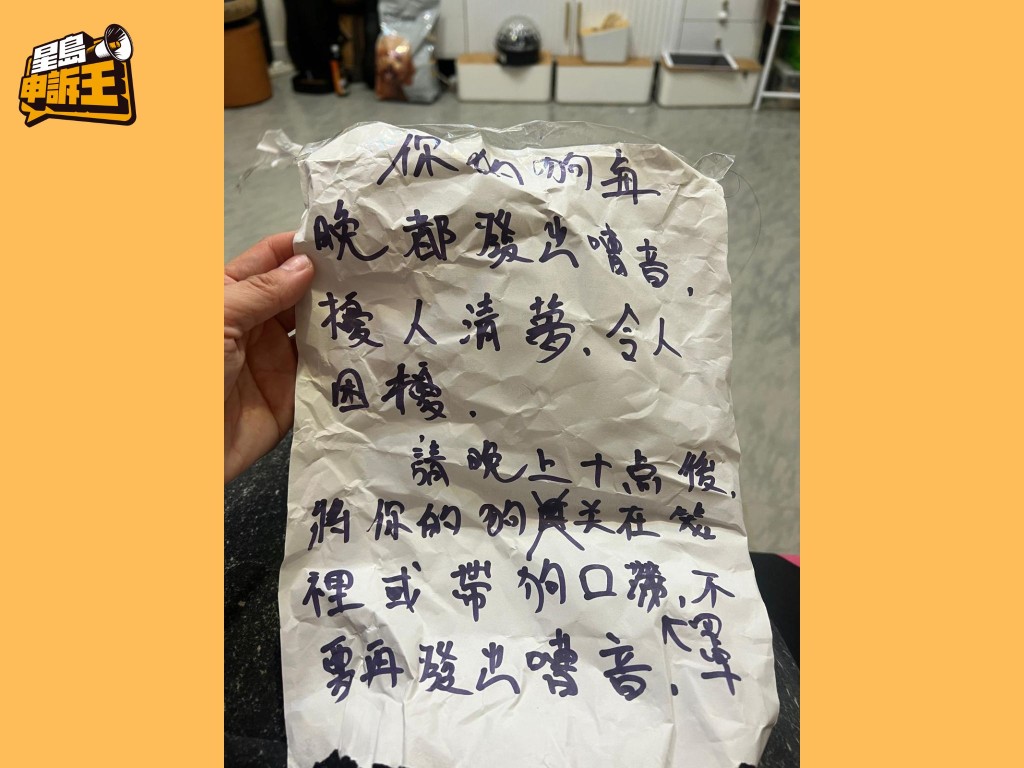 星島
申訴王
你的狗每
晚都發出嘈音,
擾人清夢.令人
困擾.
請晚上十点後,
將你的狗关在笼
裡或帶狗口罩,不
要再發出嘈音.